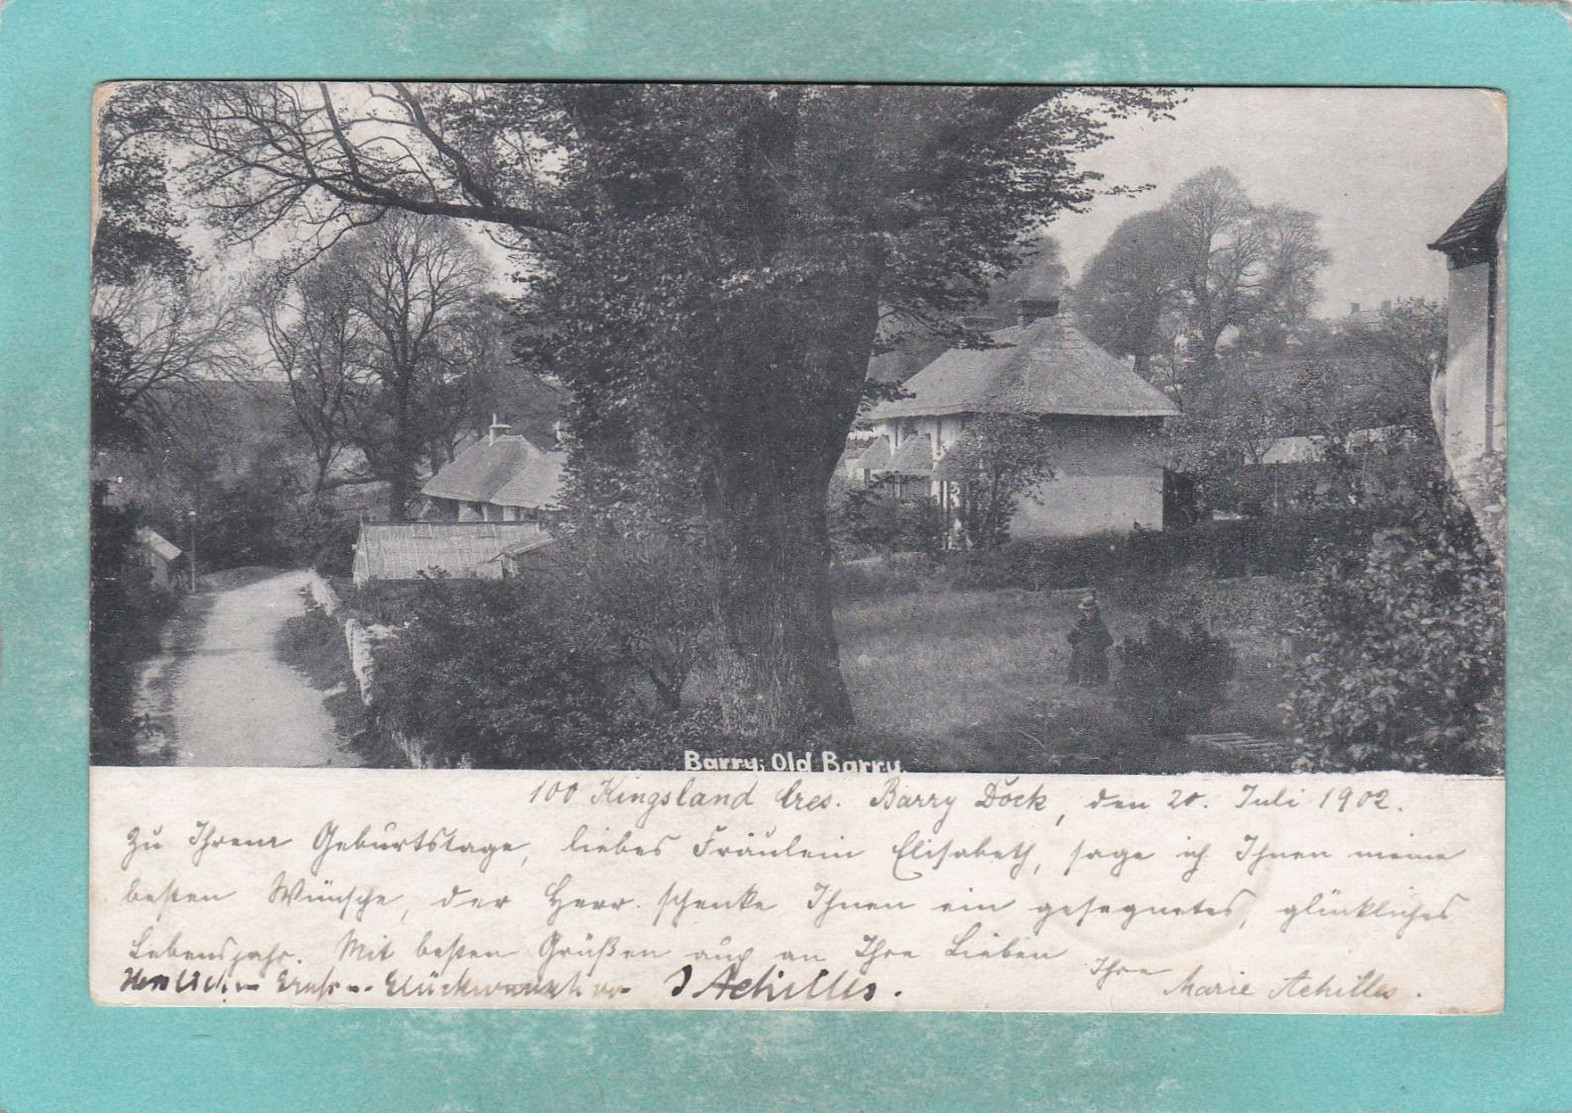 Barry; Old Barry.
100 Kingsland Cres. Barry Dock, den 20. Juli 1902.
Zu Ihrem Geburtstage, liebes Fräulein Elisabeth, sage ich Ihnen meine
besten Wünsche, der Herr schenke Ihnen ein gesegnetes, glückliches
Lebensjahr. Mit besten Grüßen auch an Ihre Lieben
Ihre Marie Achilles.
Herzlichen Gruß u. Glückwunsch von J Achilles.